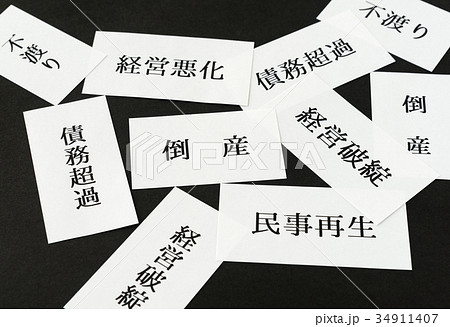 不渡り
経営悪化
債務超過
不渡り
債務超過
倒産
経営破綻
倒産
経営破綻
民事再生
PIXTA
pixta.jp - 34911407